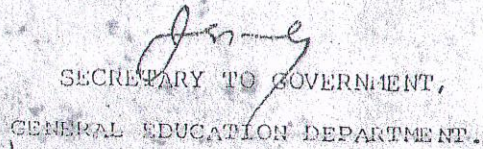 SECRETARY TO GOVERNMENT,
GENERAL EDUCATION DEPARTMENT.